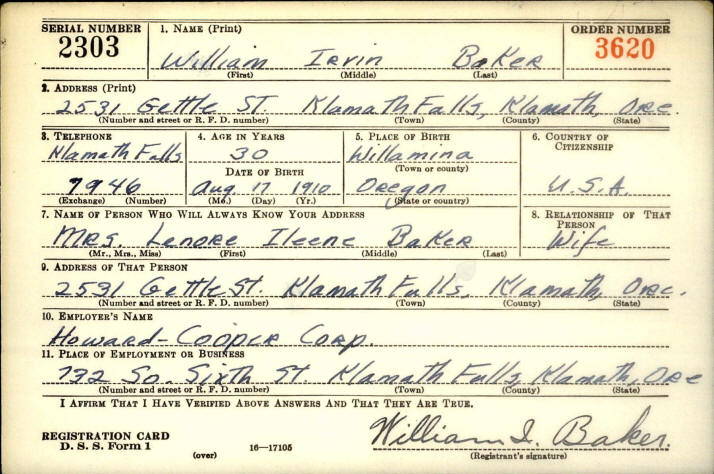 SERIAL NUMBER 1. NAME (Print) ORDER NUMBER
2303 William Irvin Baker 3620
(First) (Middle) (Last)
2. ADDRESS (Print)
2531 Gettle St. Klamath Falls, Klamath, Ore.
(Number and street or R. F. D. number) (Town) (County) (State)
3. TELEPHONE 4. AGE IN YEARS 5. PLACE OF BIRTH 6. COUNTRY OF CITIZENSHIP
Klamath Falls 30 Willamina
DATE OF BIRTH (Town or county)
7946 Aug 17 1910 Oregon U.S.A.
(Exchange) (Number) (Mo.) (Day) (Yr.) (State or country)
7. NAME OF PERSON WHO WILL ALWAYS KNOW YOUR ADDRESS 8. RELATIONSHIP OF THAT PERSON
Mrs. Lenore Ileene Baker Wife
(Mr., Mrs., Miss) (First) (Middle) (Last)
9. ADDRESS OF THAT PERSON
2531 Gettle St. Klamath Falls, Klamath, Ore.
(Number and street or R. F. D. number) (Town) (County) (State)
10. EMPLOYER'S NAME
Howard-Cooper Corp.
11. PLACE OF EMPLOYMENT OR BUSINESS
732 So. Sixth St. Klamath Falls, Klamath, Ore
(Number and street or R. F. D. number) (Town) (County) (State)
I AFFIRM THAT I HAVE VERIFIED ABOVE ANSWERS AND THAT THEY ARE TRUE.
REGISTRATION CARD
D. S. S. Form 1 16—17105 William I. Baker.
(over) (Registrant's signature)